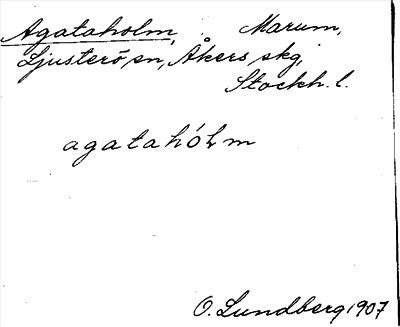 Agataholm, Marum,
Ljusterö, sn, Åkers skg,
Stockh. l.
agatahólm
O. Lundberg 1907